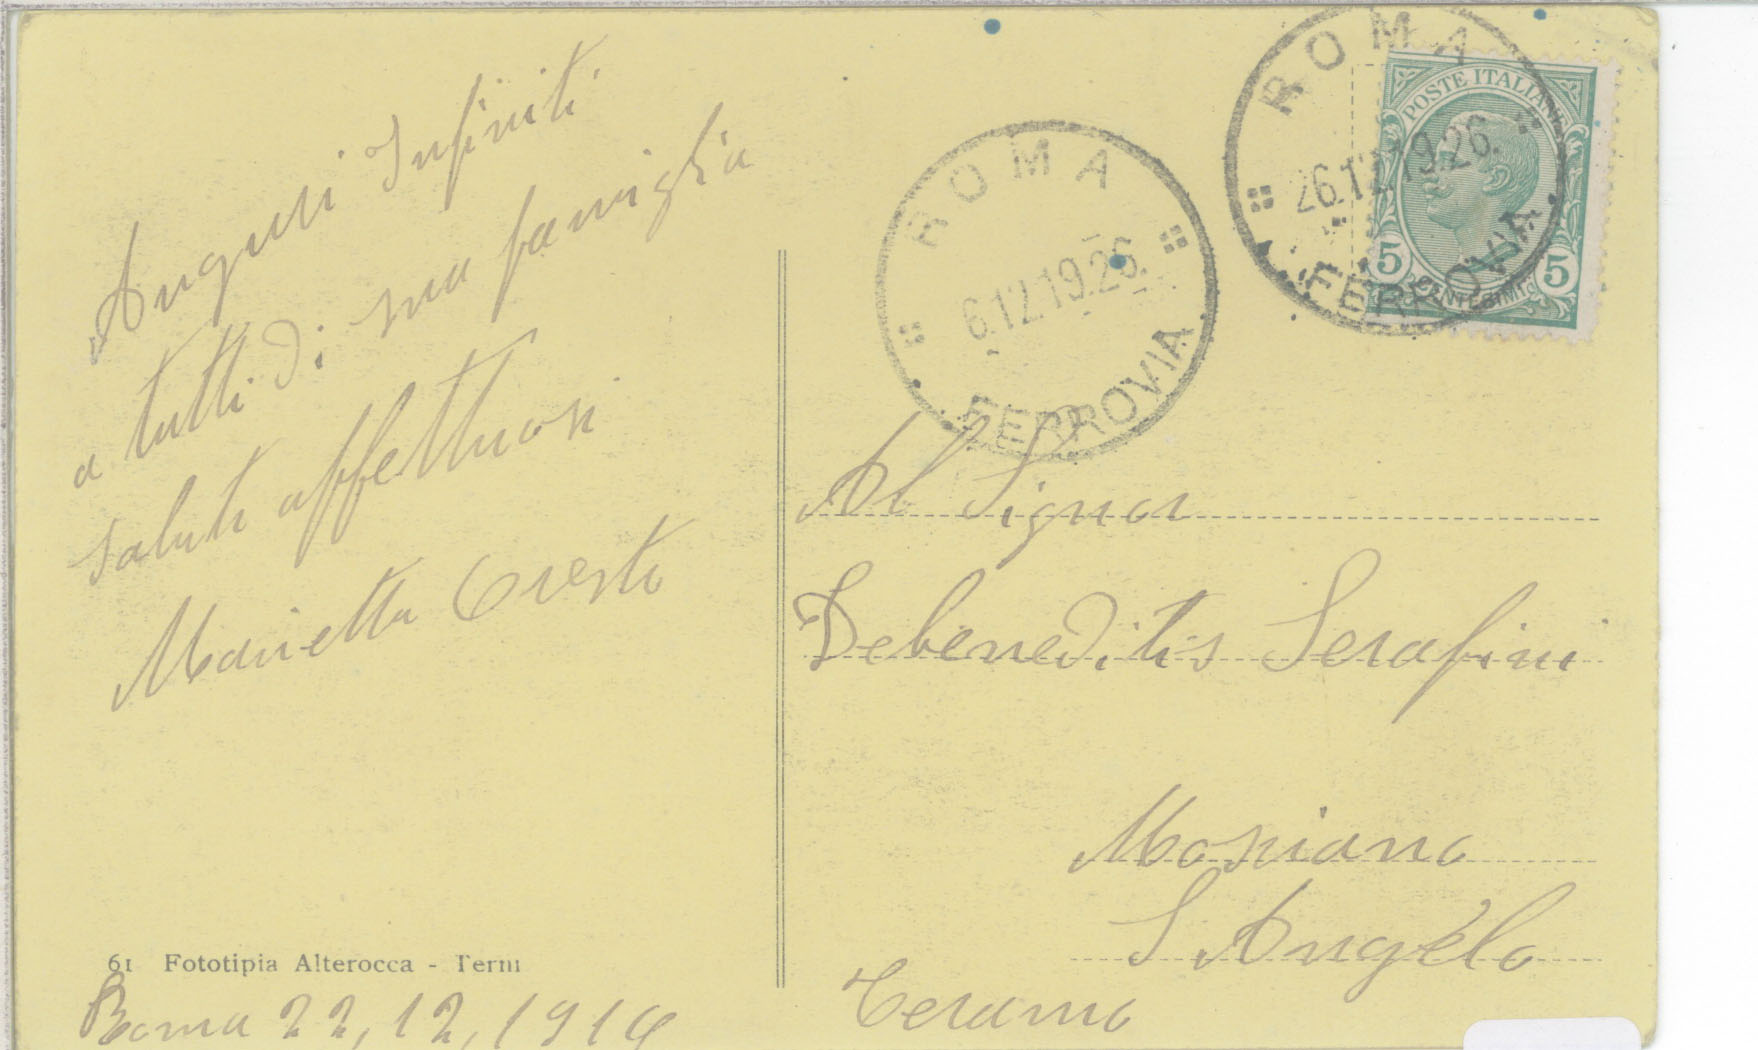 Auguri Infiniti
a tutti di sua famiglia
saluti affettuosi
Marietta Oresto
61 Fototipia Alterocca - Terni
Roma 22, 12, 1919
ROMA
6.12.19.26.
FERROVIA
ROMA
26.12.19.26.
FERROVIA
POSTE ITALIANE
5 CENTESIMI 5
Al Signor
Debeneditis Serafini
Mosiano
S Angelo
Teramo